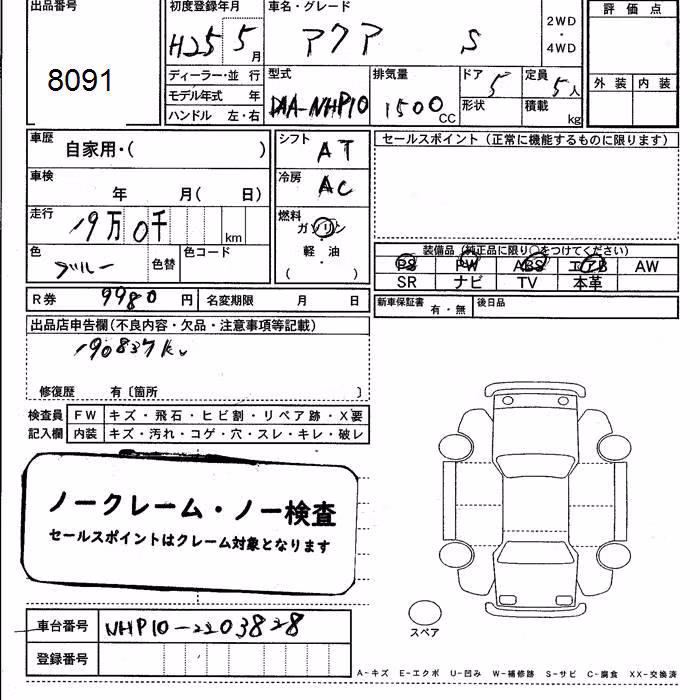 出品番号
8091
初度登録年月
H25 5月
ディーラー・並 行
モデル年式 年
ハンドル 左・右
車名・グレード
アクア S
2WD
・
4WD
型式
DAA-NHP10
排気量
1500CC
ドア
5
形状
定員
5人
積載
kg
評 価 点
外 装 内 装
車歴
自家用・( )
車検
年 月( 日)
走行
19万0千 km
色
ブルー
色替
色コード
シフト
AT
冷房
AC
燃料
ガソリン
軽・油
( )
セールスポイント(正常に機能するものに限ります)
装備品(純正品に限り○をつけてください)
PS PW ABS エアB AW
SR ナビ TV 本革
R券 9980 円 名変期限 月 日
新車保証書 有・無 後日品
出品店申告欄(不良内容・欠品・注意事項等記載)
190837k
修復歴 有〔箇所 〕
検査員 FW キズ・飛石・ヒビ割・リペア跡・X要
記入欄 内装 キズ・汚れ・コゲ・穴・スレ・キレ・破レ
ノークレーム・ノー検査
セールスポイントはクレーム対象となります
スペア
車台番号 NHP10-2203828
登録番号
A-キズ E-エクボ U-凹み W-補修跡 S-サビ C-腐食 XX-交換済